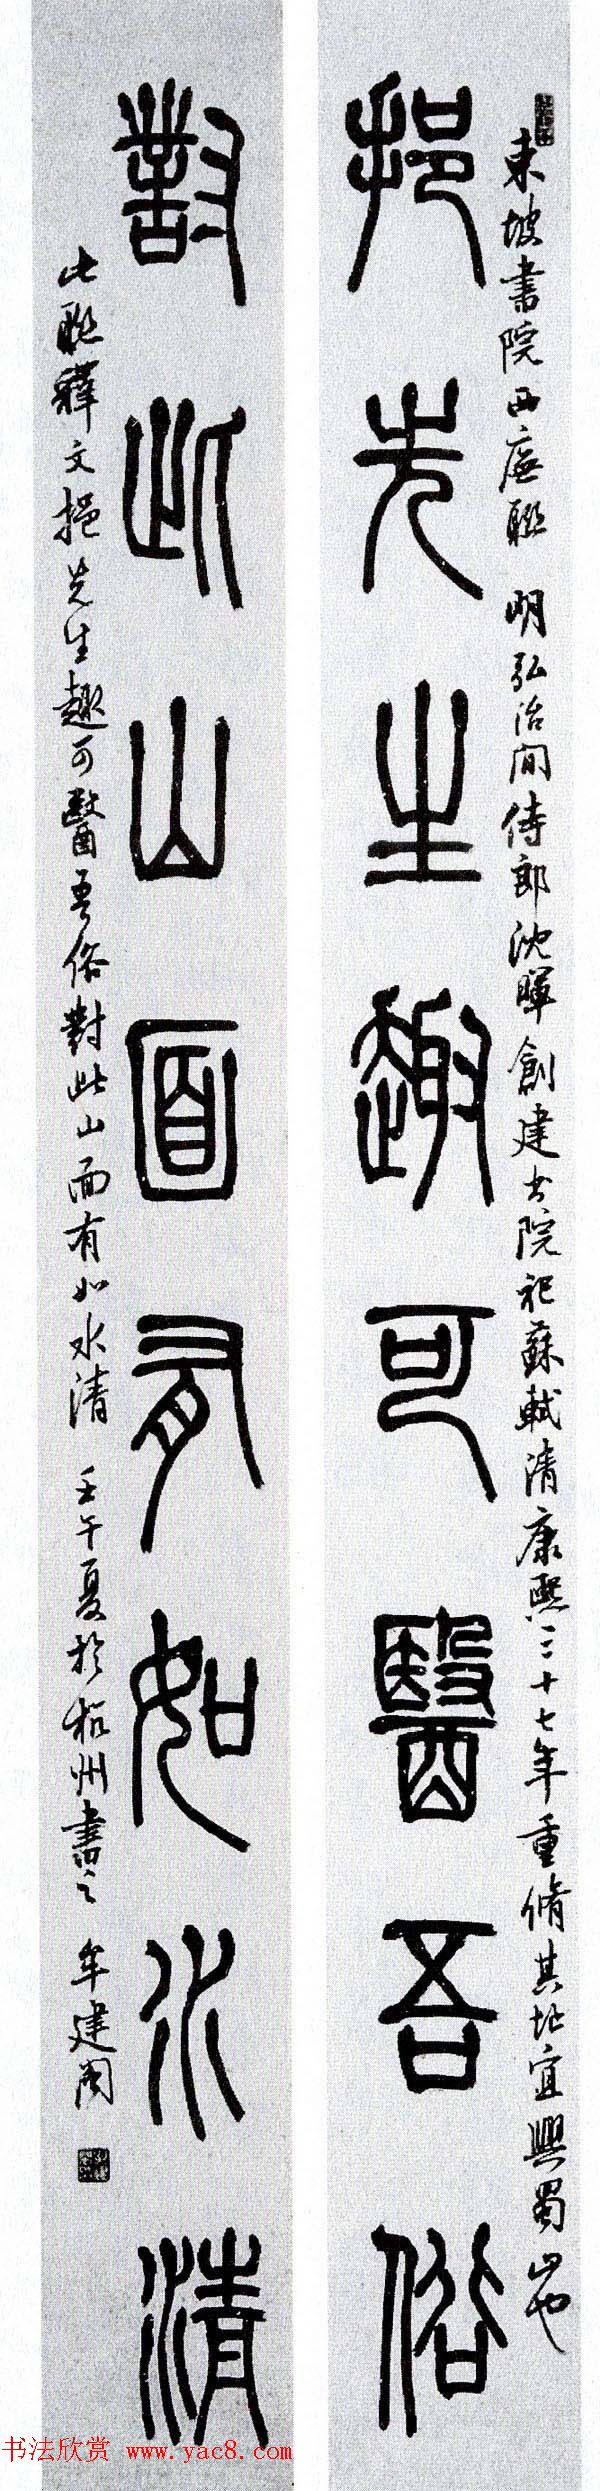 東坡書院西廡聯 明弘治間侍郎沈暉創建書院祀蘇軾清康熙三十七年重脩其址宜興蜀山也
挹先生趣可醫吾俗
對此山面有如水清
此聯釋文挹先生趣可醫吾俗對此山面有如水清 壬午夏於杭州書之 牟建
书法欣赏 www.yac8.com